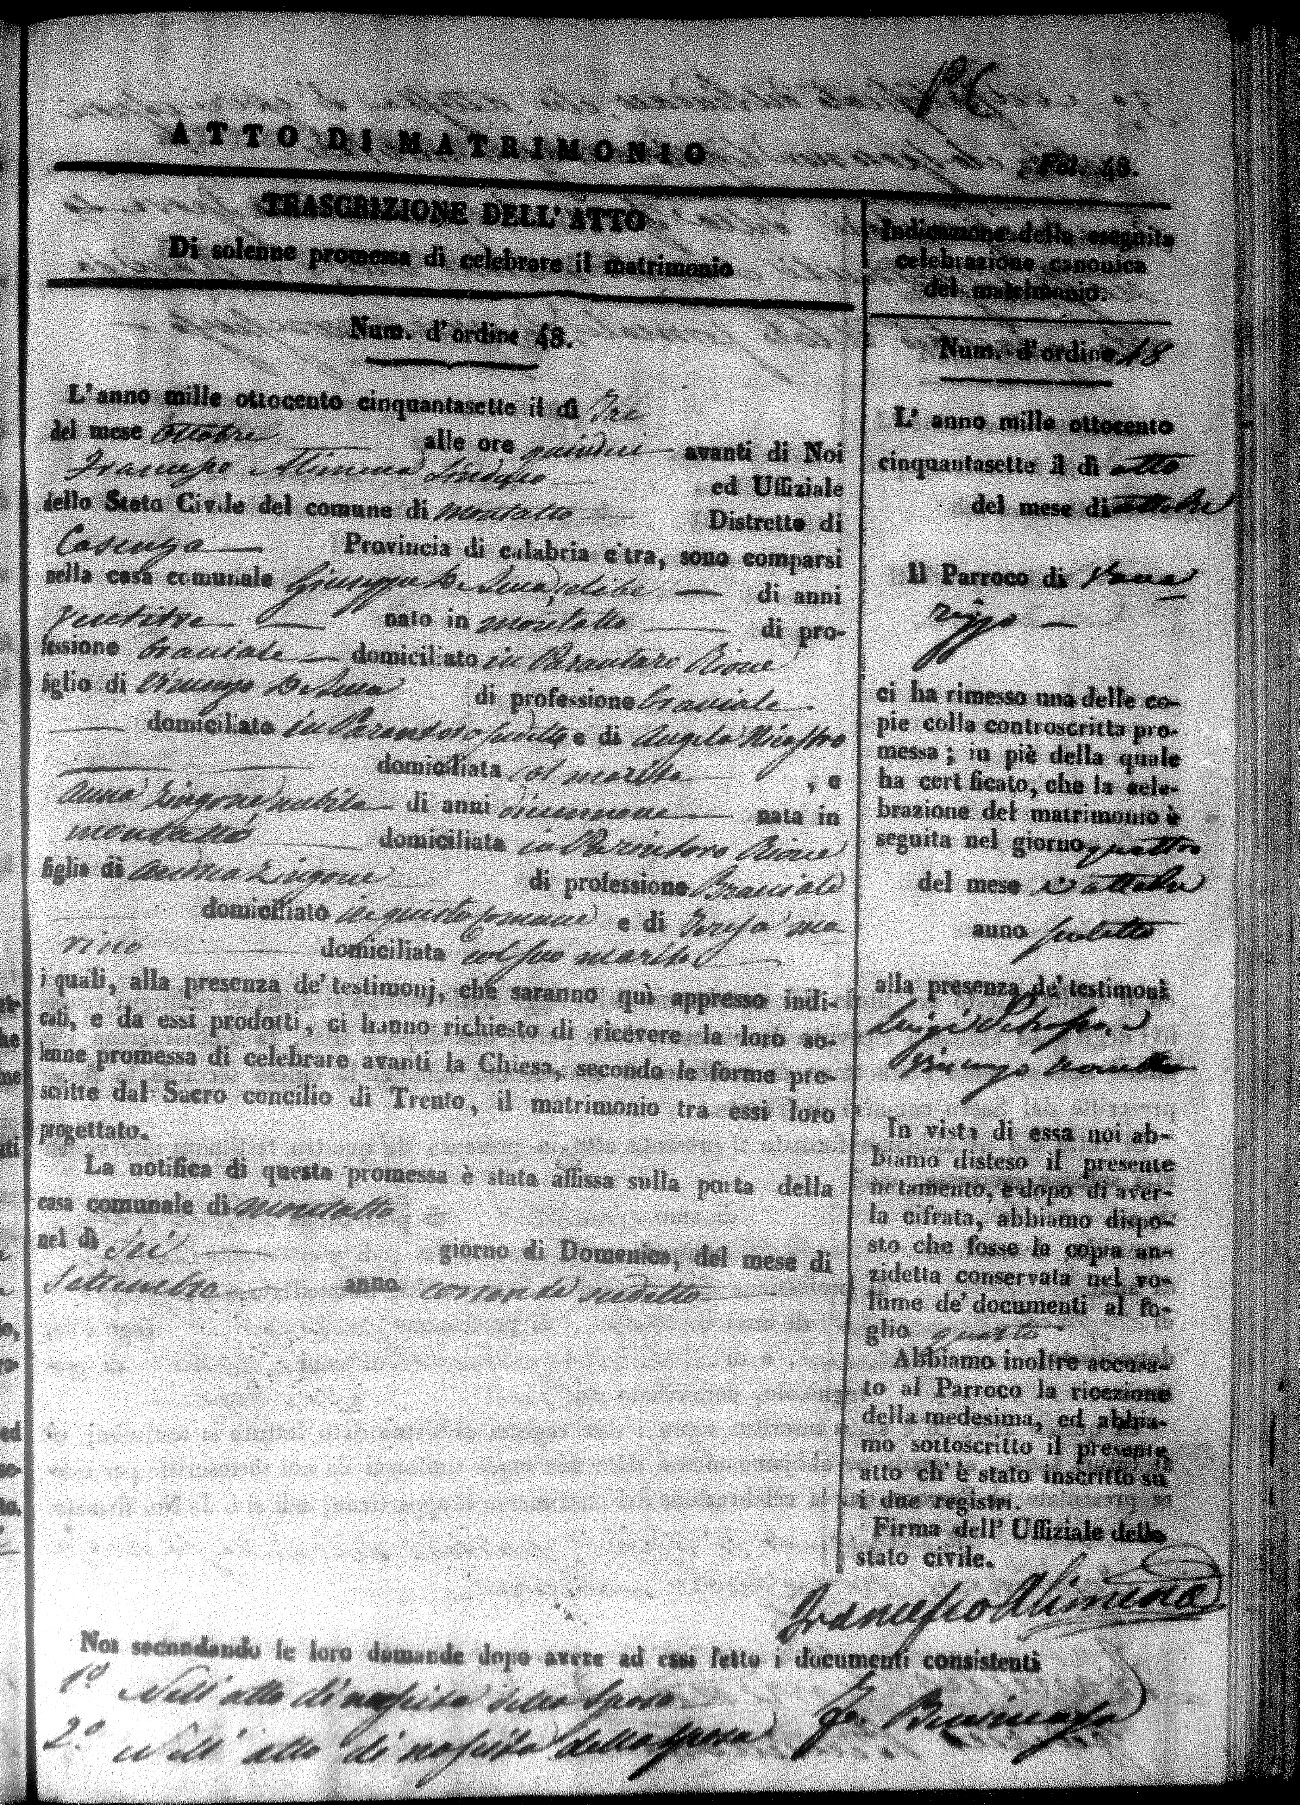 ATTO DI MATRIMONIO
Fol. 48.
TRASCRIZIONE DELL' ATTO
Di solenne promessa di celebrare il matrimonio
Num. d'ordine 48.
L'anno mille ottocento cinquantasette il dì Tre
del mese ottobre alle ore quindici avanti di Noi
Francesco Alimena Sindaco ed Uffiziale
dello Stato Civile del comune di montalto Distretto di
Cosenza Provincia di calabria citra, sono comparsi
nella casa comunale Giuseppe De Luca di anni
ventitre nato in montalto di pro-
fessione bracciale domiciliato in Parantoro Rione
figlio di Vincenzo De Luca di professione bracciale
domiciliato in Parantoro sudetto e di Angela Nicastro
domiciliata col marito , e
Anna Zingone nubile di anni diecinnove nata in
montalto domiciliata in Parantoro Rione
figlia di Zingone di professione Bracciale
domiciliato in questo Comune e di Teresa Ma
rino domiciliata col suo marito
i quali, alla presenza de' testimonj, che saranno quì appresso indi-
cati, e da essi prodotti, ci hanno richiesto di ricevere la loro so-
lenne promessa di celebrare avanti la Chiesa, secondo le forme pre-
scritte dal Sacro concilio di Trento, il matrimonio tra essi loro
progettato.
La notifica di questa promessa è stata affissa sulla porta della
casa comunale di Montalto
nel dì sei giorno di Domenica, del mese di
Settembre anno corrente sudetto
Indicazione della eseguita
celebrazione canonica
del matrimonio.
Num. d'ordine 48
L' anno mille ottocento
cinquantasette il dì otto
del mese di ottobre
Il Parroco di Vacca
rizzo
ci ha rimesso una delle co-
pie colla controscritta pro-
messa; in piè della quale
ha certificato, che la cele-
brazione del matrimonio è
seguita nel giorno quattro
del mese di ottobre
anno sudetto
alla presenza de' testimoni
Luigi
Vincenzo
In vista di essa noi ab-
biamo disteso il presente
notamento, e dopo di aver-
la cifrata, abbiamo dispo-
sto che fosse la copia an-
zidetta conservata nel vo-
lume de' documenti al fo-
glio quarto
Abbiamo inoltre accusa-
to al Parroco la ricezione
della medesima, ed abbia-
mo sottoscritto il presente
atto ch'è stato inscritto su
i due registri.
Firma dell' Uffiziale dello
stato civile.
Francesco Alimena
Noi secondando le loro domande dopo avere ad essi letto i documenti consistenti
1.º Nell'atto di nascita dello sposo
2.º Nell'atto di nascita della sposa